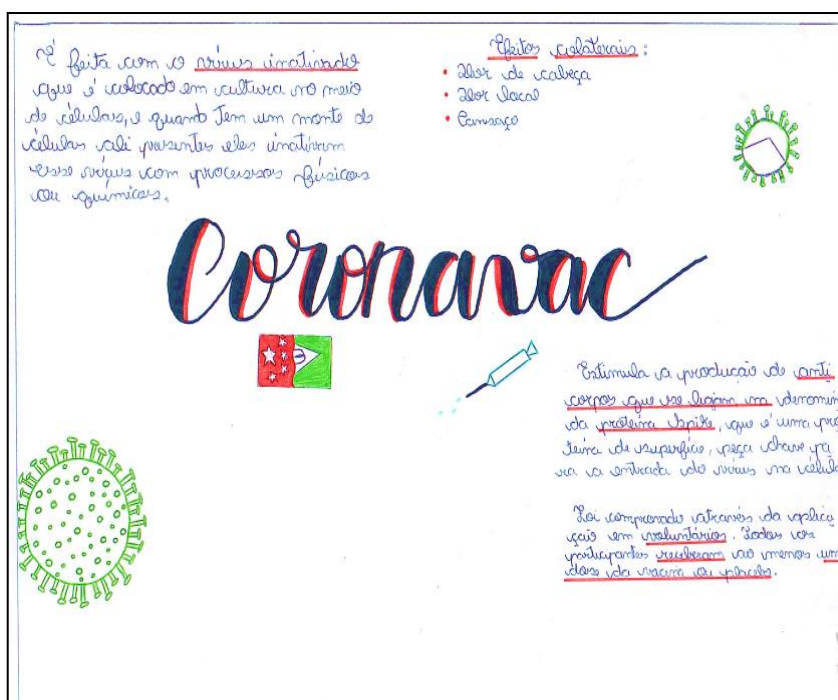 É feita com o vírus inativado
que é colocado em cultura no meio
de células, e quando tem um monte de
células ali presentes eles inativam
esse vírus com processos físicos
ou químicos.
Efeitos colaterais:
• Dor de cabeça
• Dor local
• Cansaço
Coronavac
Estimula a produção de anti
corpos que se ligam na denomin
da proteína Spike, que é uma pro
teína de superfície, peça chave pa
ra a entrada do vírus na célula
Foi comprovado através da aplica
ção em voluntários. Todos os
participantes receberam ao menos um
dose da vacina ou placebo.